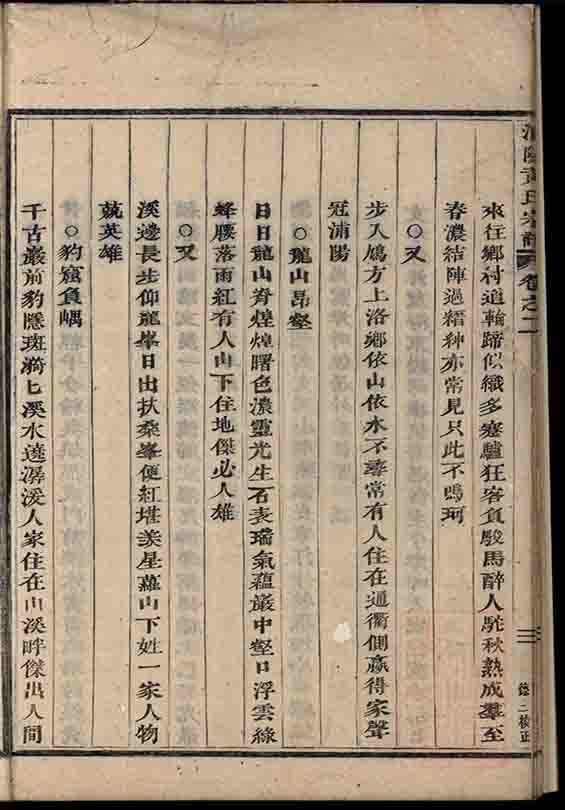 浦陽黃氏宗譜 卷之二
三
德二校正
來往鄉村道輪蹄似織多蹇驢狂客負駿馬醉人馱秋熟成羣至
春濃結陣過縉紳亦常見只此不鳴珂
○又
步入鳩方上洛鄉依山依水不尋常有人住在通衢側贏得家聲
冠浦陽
○龍山昂壑
日日龍山脊煌煌曙色濃靈光生石表瑞氣蘊巖中壑口浮雲綠
蜂腰落雨紅有人山下住地傑必人雄
○又
溪邊長步仰龍峯日出扶桑峯便紅堪羨星蘿山下姓一家人物
競英雄
○豹窟負嵎
千古巖前豹隱斑漪七溪水遶潺湲人家住在山溪畔傑出人間